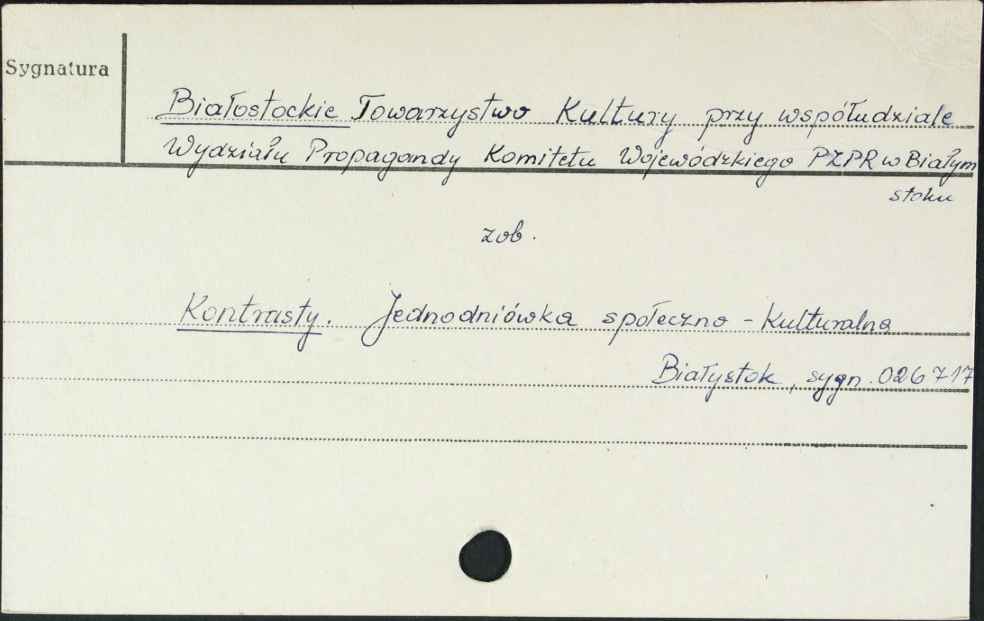 Sygnatura
Białostockie Towarzystwo Kultury przy współudziale
Wydziału Propagandy Komitetu Wojewódzkiego PZPR w Białym
stoku
zob.
Kontrasty. Jednodniówka społeczno-kulturalna
Białystok, sygn. 026717